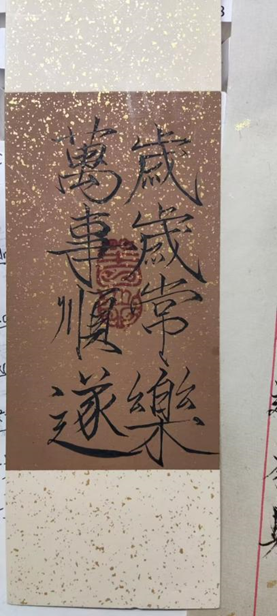 歲歲常樂
萬事順遂